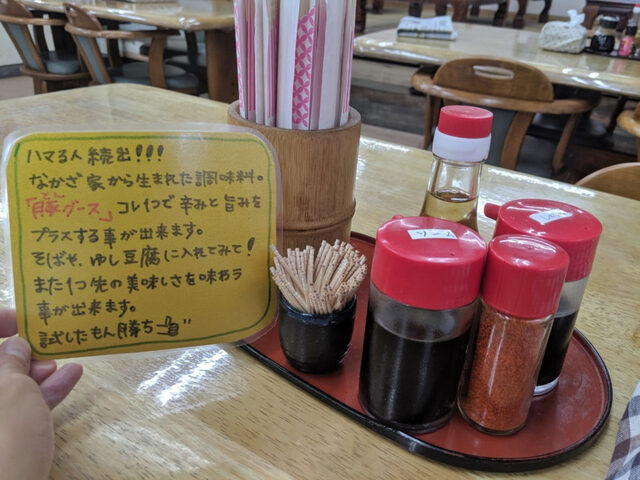 ハマる人 続出!!!
なかざ家から生まれた調味料。
「豚グース」コレ1つで辛みと旨みを
プラスする事が出来ます。
そばや、ゆし豆腐に入れてみて!
また1つ先の美味しさを味わう
事が出来ます。
試したもん勝ち
ソース